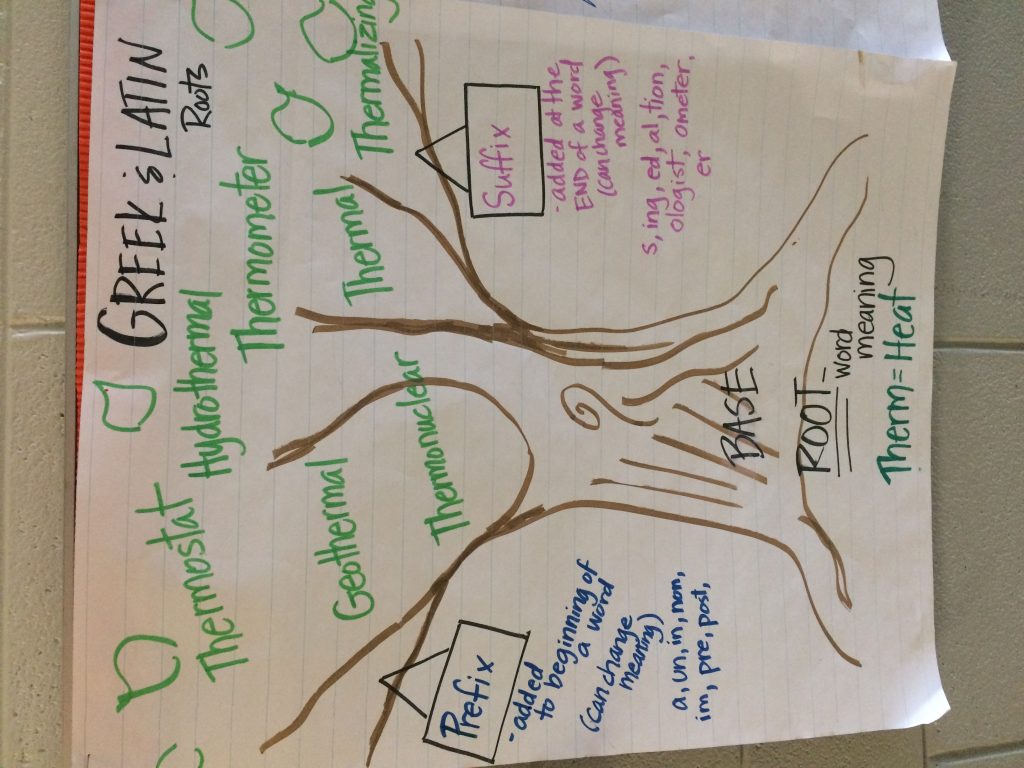 GREEK & LATIN
Roots
Thermostat
Hydrothermal
Thermometer
Geothermal
Thermonuclear
Thermal
Thermalizing
Prefix
- added
to beginning of
a word
(can change
meaning)
a, un, in, non,
im, pre, post,
Suffix
- added at the
END of a word
(can change
meaning)
s, ing, ed, al, tion,
ologist, ometer,
er
BASE
ROOT - word
meaning
Therm = Heat